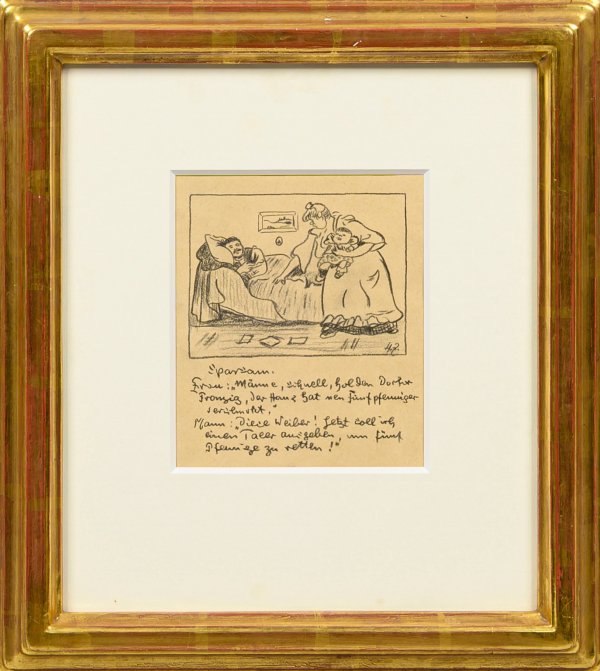 Sparsam.
Frau: "Männe, schnell, hol den Doktor
Franzig, der Hans hat nen Fünfpfenniger
verschluckt."
Mann: "Diese Weiber! Jetzt soll ich
einen Taler ausgeben, um fünf
Pfennige zu retten!"